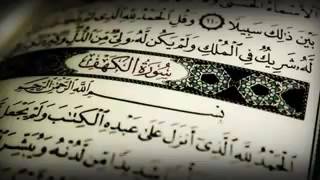 بَيْنَ ذَٰلِكَ سَبِيلًا ١١٠ وَقُلِ الْحَمْدُ لِلَّهِ الَّذِي
لَّهُ شَرِيكٌ فِي الْمُلْكِ وَلَمْ يَكُن لَّهُ وَلِيٌّ مِّنَ الذُّلِّ
سُورَةُ الْكَهْفِ
بِسْمِ اللَّهِ الرَّحْمَٰنِ الرَّحِيمِ
الْحَمْدُ لِلَّهِ الَّذِي أَنزَلَ عَلَىٰ عَبْدِهِ الْكِتَابَ وَلَمْ يَجْعَل
مِّن لَّدُنْهُ وَيُبَشِّرَ